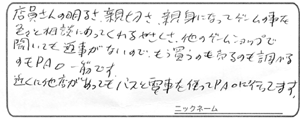 店員さんの明るさ、親切さ、親身になってゲームの事を
色々と相談にのってくれるやさしさ、他のゲームショップで
聞いても返事がないので、もう買うのも売るのも調べる
のもPAO一筋です。
近くに他店があってもバスと電車を使ってPAOに行ってます。
ニックネーム